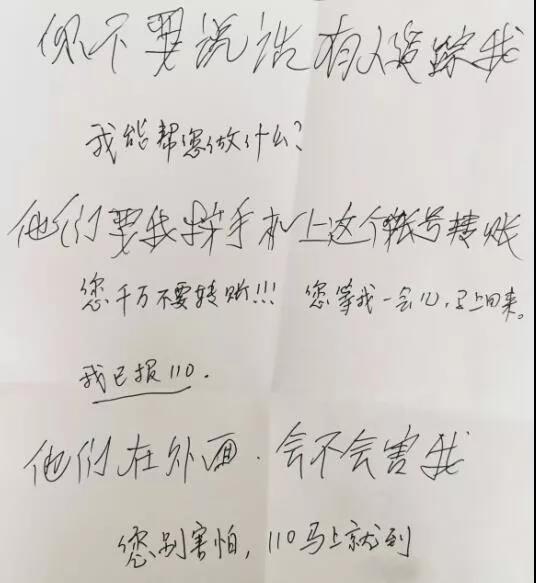 你不要说话有人追踪我
我能帮您做什么?
他们要我按手机上这个帐号转账
您千万不要转账!!! 您等我一会儿,马上回来。
我已报110.
他们在外面.会不会害我
您别害怕,110马上就到